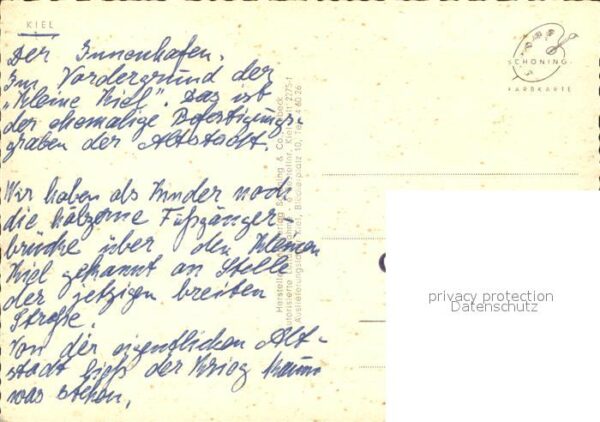 KIEL
Der Innenhafen.
Im Vordergrund der
"Kleine Kiel". Das ist
der ehemalige Befestigungs-
graben der Altstadt.
Wir haben als Kinder noch
die hölzerne Fußgänger-
brücke über den Kleinen
Kiel gekannt an Stelle
der jetzigen breiten
Straße.
Von der eigentlichen Alt-
stadt ließ der Krieg kaum
was stehen.
SCHÖNING
FARBKARTE
Schöning & Co.
Kiel, Blücherplatz 10, Tel. 4 60 26
privacy protection
Datenschutz